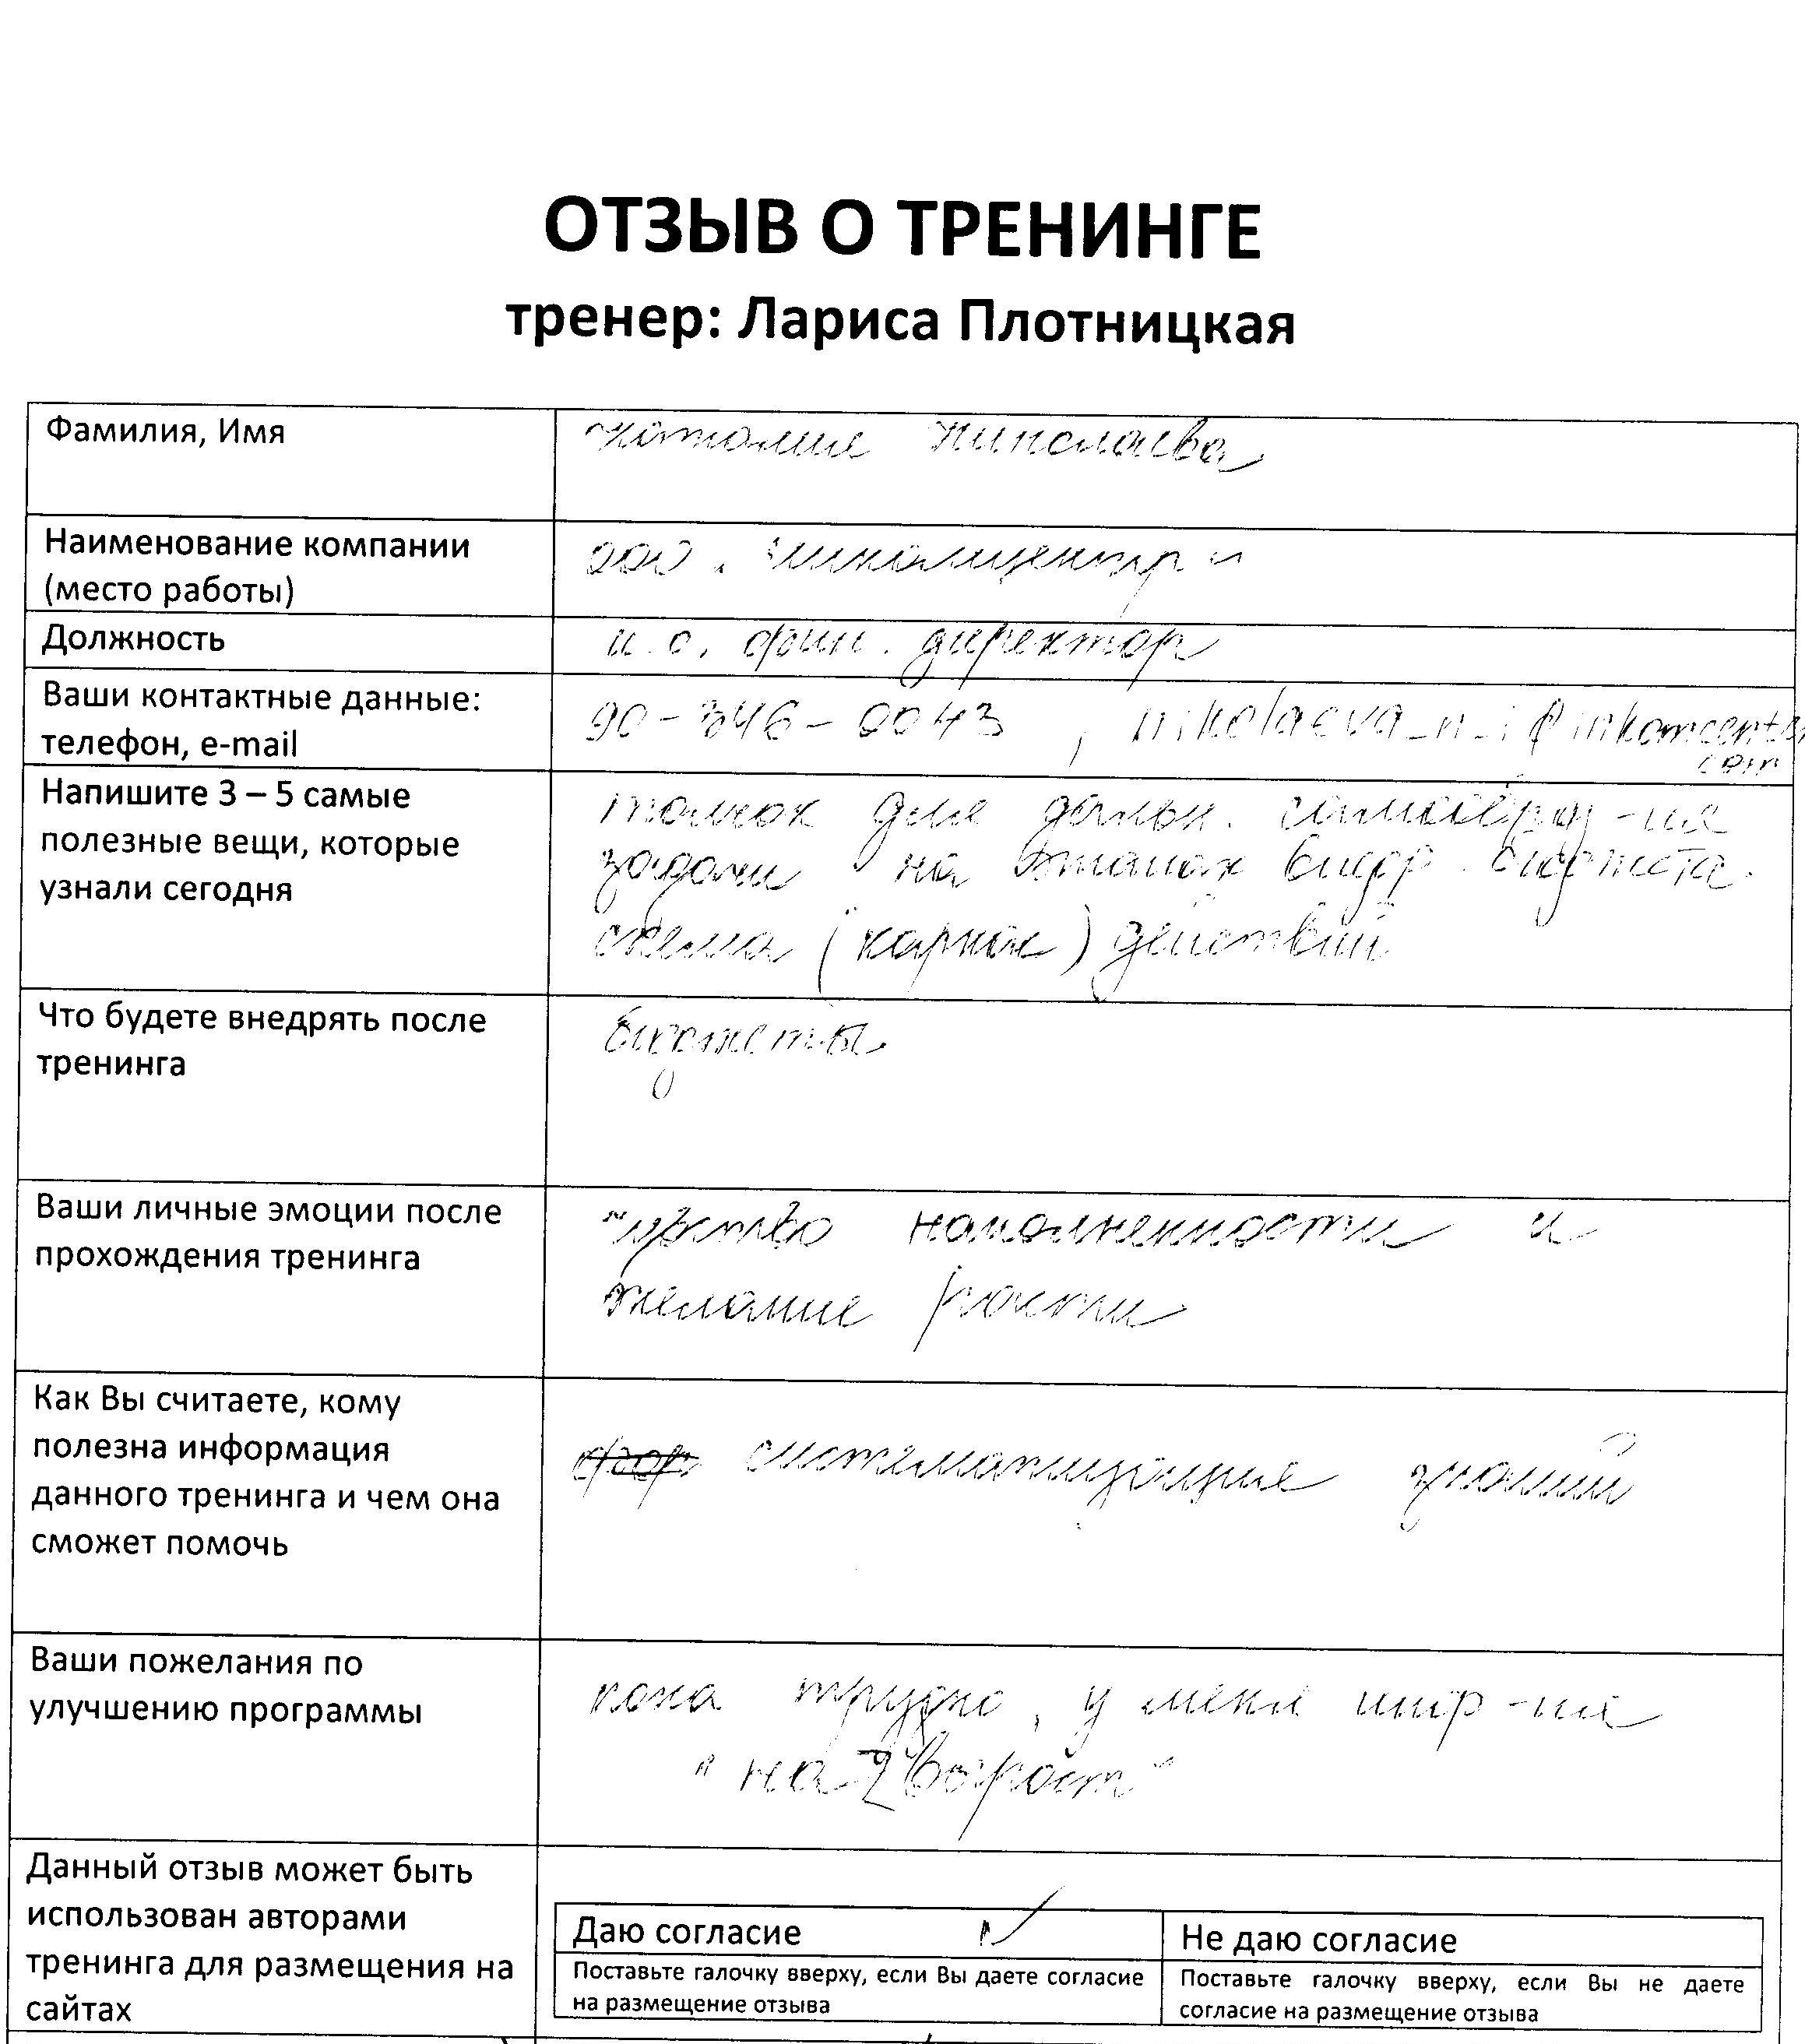 ОТЗЫВ О ТРЕНИНГЕ
тренер: Лариса Плотницкая
Фамилия, Имя
Наталия Николаева
Наименование компании
(место работы)
ООО "Инкомцентр"
Должность
и.о. фин. директор
Ваши контактные данные:
телефон, e-mail
90-346-0043, nikolaeva_n_i@inkomcenter
com
Напишите 3 – 5 самые
полезные вещи, которые
узнали сегодня
толчок для дальн.
задачи на этапах внедр. бюджета.
схема (каркас) действий
Что будете внедрять после
тренинга
бюджеты.
Ваши личные эмоции после
прохождения тренинга
чувство наполненности и
желание расти
Как Вы считаете, кому
полезна информация
данного тренинга и чем она
сможет помочь
систематизация знаний
Ваши пожелания по
улучшению программы
пока трудно, у меня инф-ия
"на вырост"
Данный отзыв может быть
использован авторами
тренинга для размещения на
сайтах
Даю согласие
Поставьте галочку вверху, если Вы даете согласие
на размещение отзыва
Не даю согласие
Поставьте галочку вверху, если Вы не даете
согласие на размещение отзыва